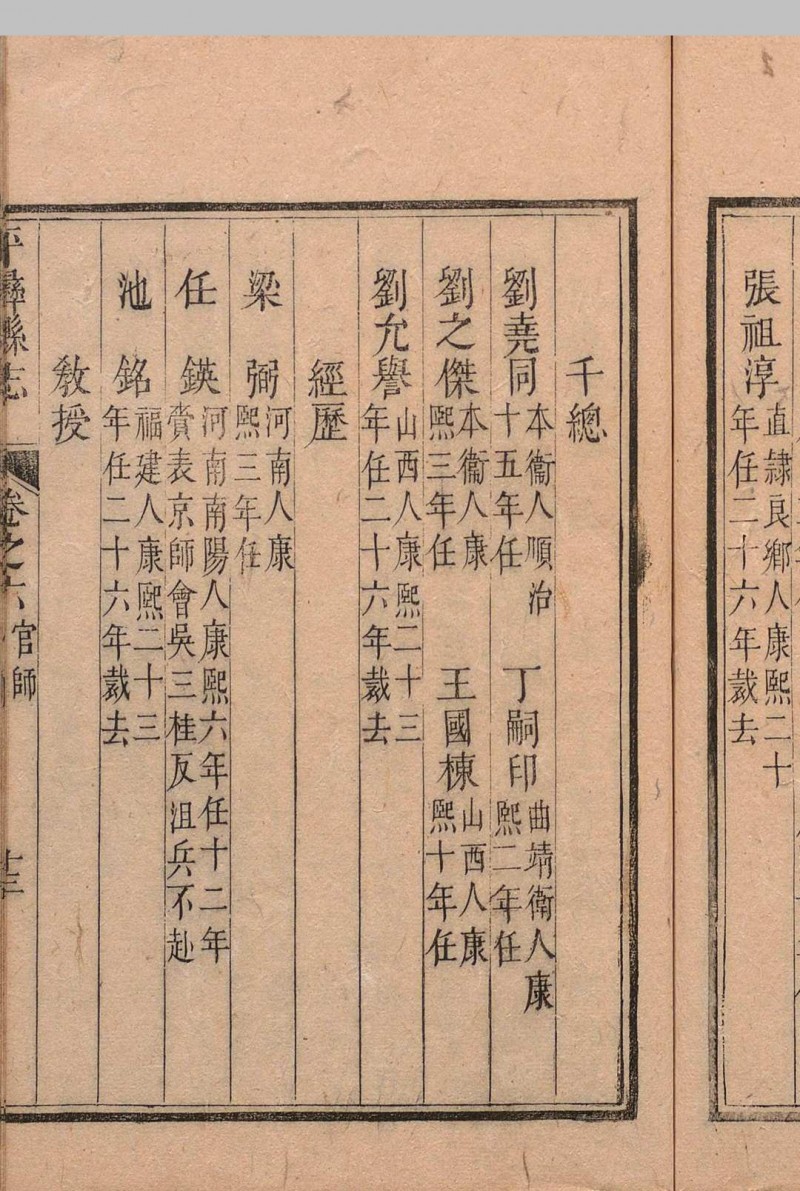 張祖淳直隷良鄉人康熙二十
年任二十六年裁去
千總
劉堯同本衞人順治
十五年任
丁嗣印曲靖衞人康
熙二年任
劉之傑本衞人康
熙三年任
王國棟山西人康
熙十年任
劉允譽山西人康熙二十三
年任二十六年裁去
經歷
梁弼河南人康
熙三年任
任鍈河南南陽人康熙六年任十二年
賫表京師會吳三桂反沮兵不赴
池銘福建人康熙二十三
年任二十六年裁去
教授
平彝縣志
卷之六
官師